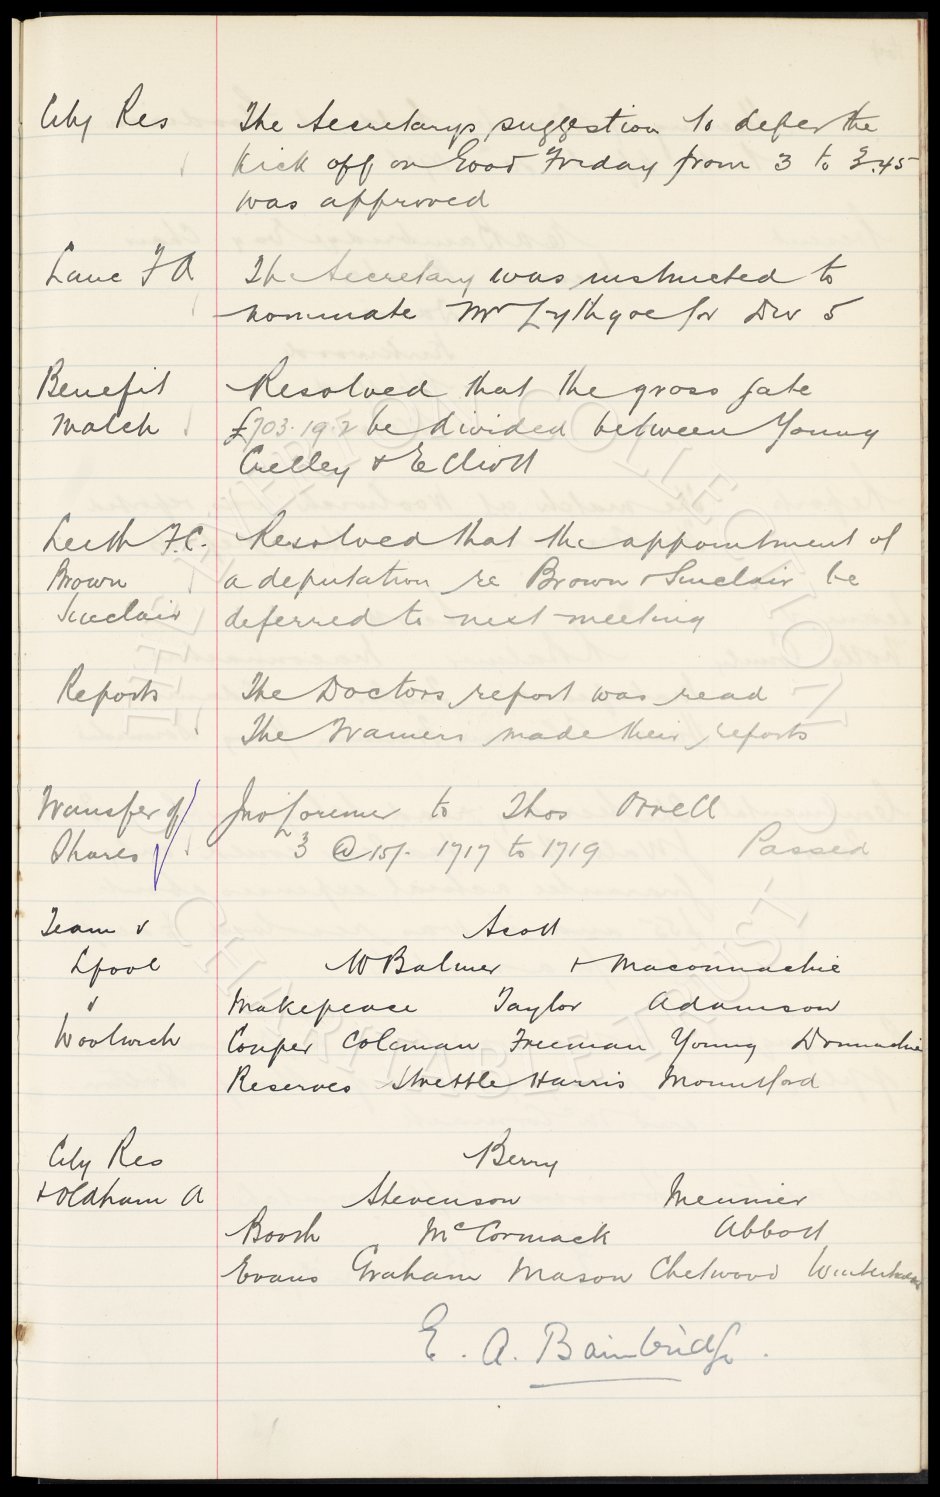 City Res The Secretarys suggestion to defer the
kick off on Good Friday from 3 to 3.45
was approved
Lanc F A The Secretary was instructed to
nominate Mr Lythgoe for Div 5
Benefit Resolved that the gross gate
Match £703.19.2 be divided between Young
Crelley & Elliott
Leith F.C. Resolved that the appointment of
Brown a deputation re Brown & Sinclair be
Sinclair deferred to next meeting
Reports The Doctors report was read
The Trainers made their reports
Transfer of Jno to Thos Orrell
Shares 3 @ 15/- 1717 to 1719 Passed
Team v Scott
Lpool W Balmer & Maconnachie
v Makepeace Taylor Adamson
Woolwich Couper Coleman Freeman Young Donnachie
Reserves Strettle Harris Mountford
City Res Berry
& Oldham A Stevenson Meunier
Borth McCormack Abbott
Evans Graham Mason Chetwood Winterburn
E. A. Bainbridge.